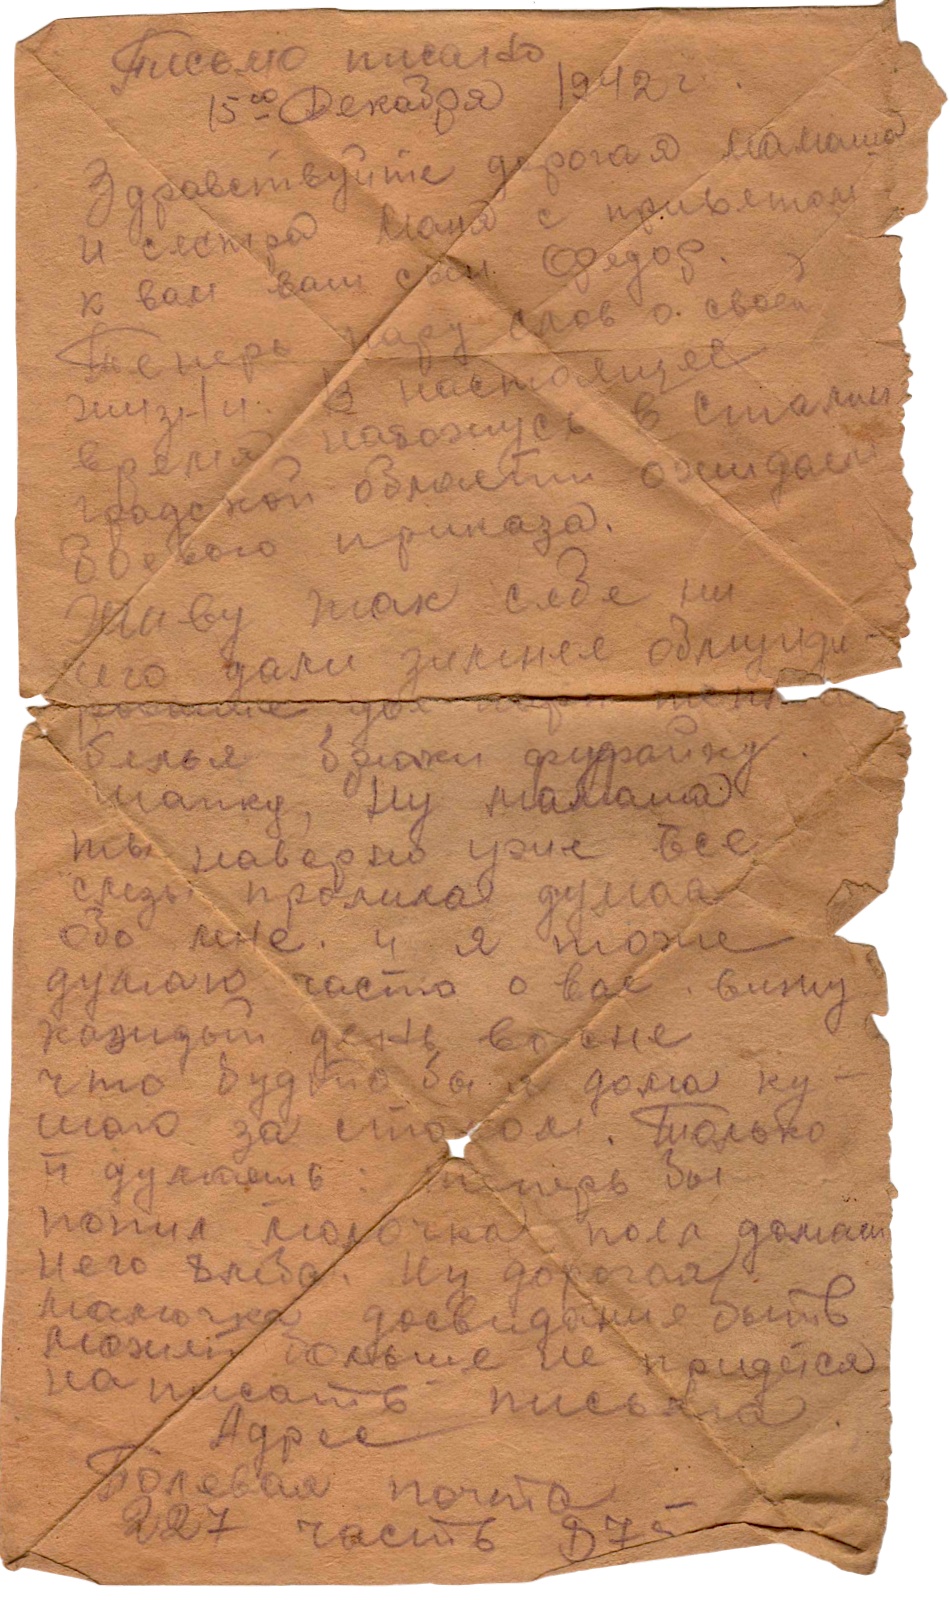 Письмо писано
15го Декабря 1942 г.
Здравствуйте дорогая мамаша
и сестра Маня с приветом
к вам ваш сын Фядор.
Теперь пару слов о своей
жизни. В настоящее
время нахожусь в Сталин
градской области ожидаем
боевого приказа.
Живу так себе ни
чего дали зимнее обмунди-
рование две пары
белья брюки фуфайку
шапку, Ну мамаша
ты наверно уже все
слезы пролила думая
обо мне. и я тоже
думаю часто о вас. вижу
каждый день во сне
что будто бы я дома ку-
шаю за столом. Только
и думаешь: теперь бы
попил молочка поел домаш
него хлеба. Ну дорогая
мамочка досвидания быть
может больше не придется
написать письма
Адрес
Полевая почта
227 часть